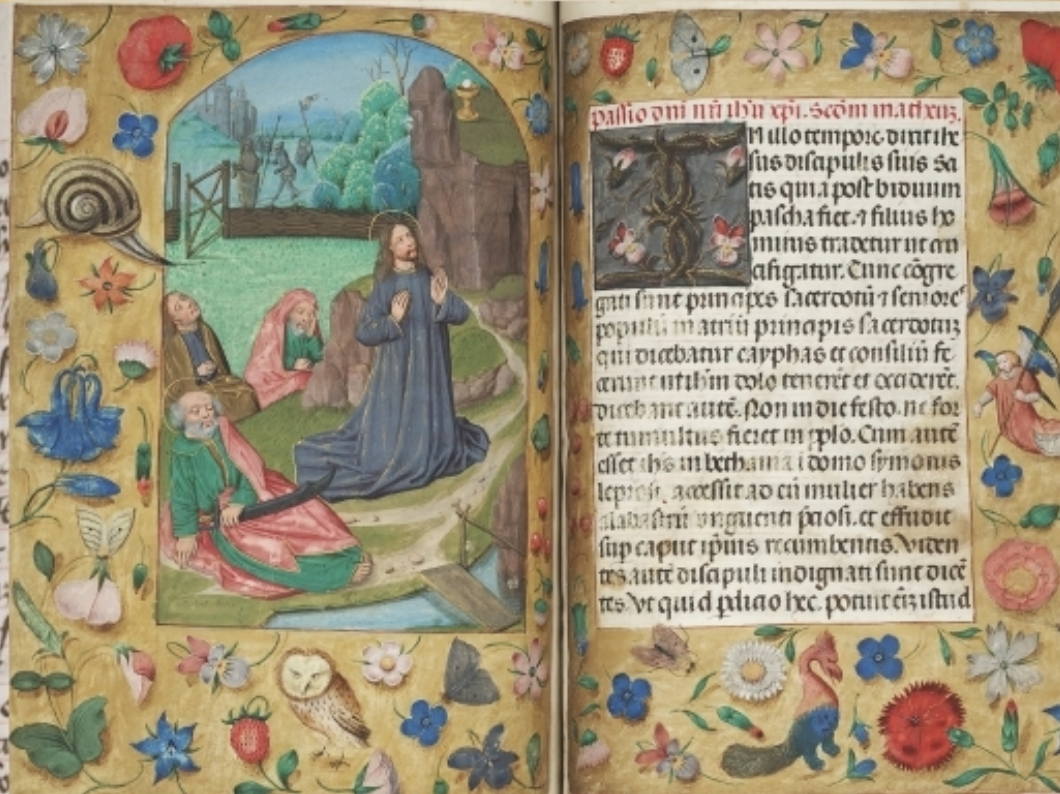 Passio dñi nr̃i ih̃u xp̃i. Scd̃m matheũ.
IN illo tempore dixit ihe
sus discipulis suis Sci
tis quia post biduum
pascha fiet. ⁊ filius ho
minis tradetur ut cru
cifigatur. Tunc cõgre
gati sunt principes sacerdotũ ⁊ seniores
populi in atriũ principis sacerdotum
qui dicebatur cayphas et consiliũ fe
cerunt ut ih̃m dolo tenerẽt et occiderẽt.
dicebant autẽ. Non in die festo. ne for
te tumultus fieret in pplo. Cum autẽ
esset ih̃s in bethania ı domo symonis
leprosi. accessit ad eũ mulier habens
alabastrũ vnguenti p̃ciosi. et effudit
sup caput ip̃ius recumbentis. Viden
tes autẽ discipuli indignati sunt dicẽ
tes. Vt quid pditio hec. potuit eĩz istud